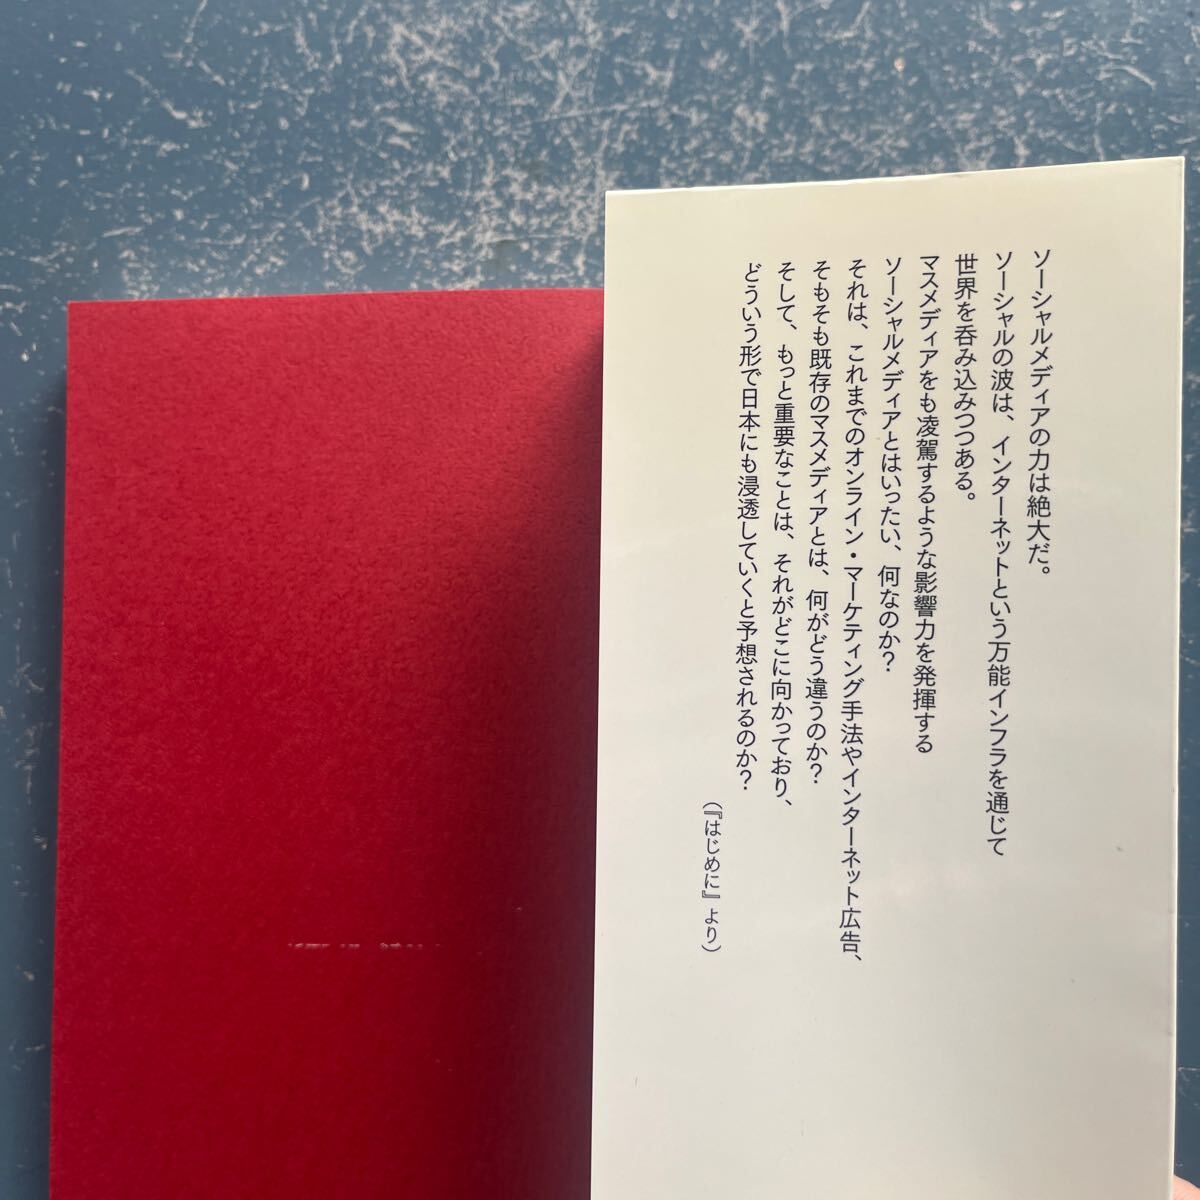 ソーシャルメディアの力は絶大だ。
ソーシャルの波は、インターネットという万能インフラを通じて
世界を呑み込みつつある。
マスメディアをも凌駕するような影響力を発揮する
ソーシャルメディアとはいったい、何なのか？
それは、これまでのオンライン・マーケティング手法やインターネット広告、
そもそも既存のマスメディアとは、何がどう違うのか？
そして、もっと重要なことは、それがどこに向かっており、
どういう形で日本にも浸透していくと予想されるのか？
（『はじめに』より）